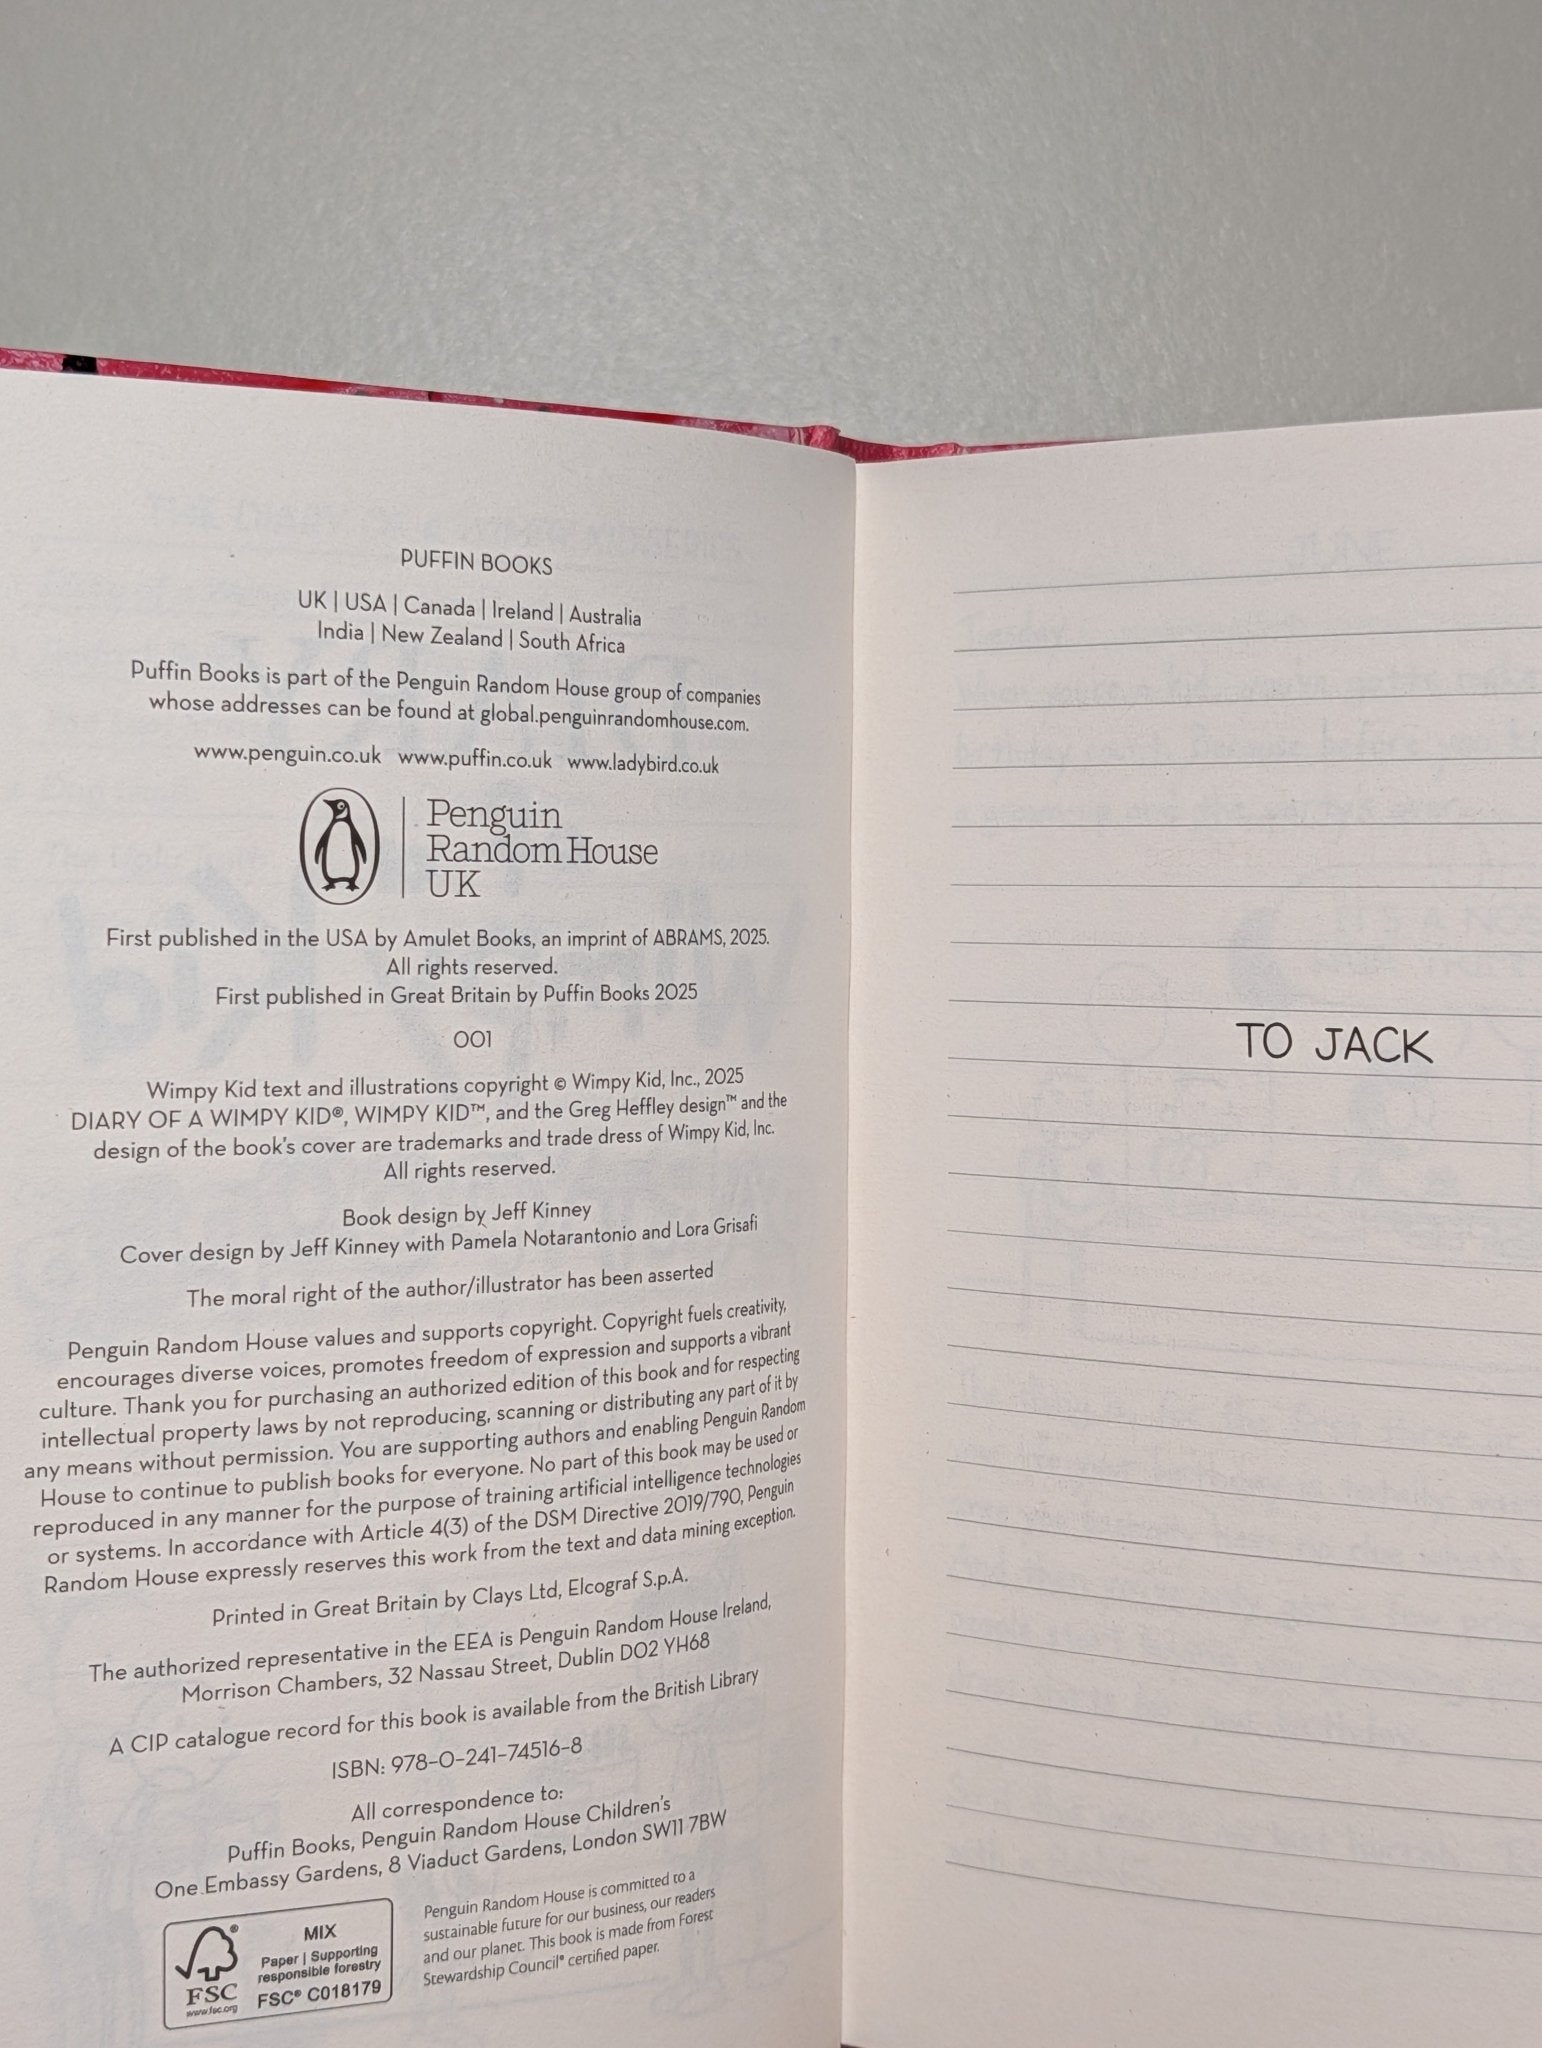 PUFFIN BOOKS
UK | USA | Canada | Ireland | Australia
India | New Zealand | South Africa
Puffin Books is part of the Penguin Random House group of companies
whose addresses can be found at global.penguinrandomhouse.com.
www.penguin.co.uk www.puffin.co.uk www.ladybird.co.uk
Penguin
Random House
UK
First published in the USA by Amulet Books, an imprint of ABRAMS, 2025.
All rights reserved.
First published in Great Britain by Puffin Books 2025
001
Wimpy Kid text and illustrations copyright © Wimpy Kid, Inc., 2025
DIARY OF A WIMPY KID®, WIMPY KID™, and the Greg Heffley design™ and the
design of the book's cover are trademarks and trade dress of Wimpy Kid, Inc.
All rights reserved.
Book design by Jeff Kinney
Cover design by Jeff Kinney with Pamela Notarantonio and Lora Grisafi
The moral right of the author/illustrator has been asserted
Penguin Random House values and supports copyright. Copyright fuels creativity,
encourages diverse voices, promotes freedom of expression and supports a vibrant
culture. Thank you for purchasing an authorized edition of this book and for respecting
intellectual property laws by not reproducing, scanning or distributing any part of it by
any means without permission. You are supporting authors and enabling Penguin Random
House to continue to publish books for everyone. No part of this book may be used or
reproduced in any manner for the purpose of training artificial intelligence technologies
or systems. In accordance with Article 4(3) of the DSM Directive 2019/790, Penguin
Random House expressly reserves this work from the text and data mining exception.
Printed in Great Britain by Clays Ltd, Elcograf S.p.A.
The authorized representative in the EEA is Penguin Random House Ireland,
Morrison Chambers, 32 Nassau Street, Dublin D02 YH68
A CIP catalogue record for this book is available from the British Library
ISBN: 978-0-241-74516-8
All correspondence to:
Puffin Books, Penguin Random House Children's
One Embassy Gardens, 8 Viaduct Gardens, London SW11 7BW
FSC
www.fsc.org
MIX
Paper | Supporting
responsible forestry
FSC® C018179
Penguin Random House is committed to a
sustainable future for our business, our readers
and our planet. This book is made from Forest
Stewardship Council® certified paper.
TO JACK